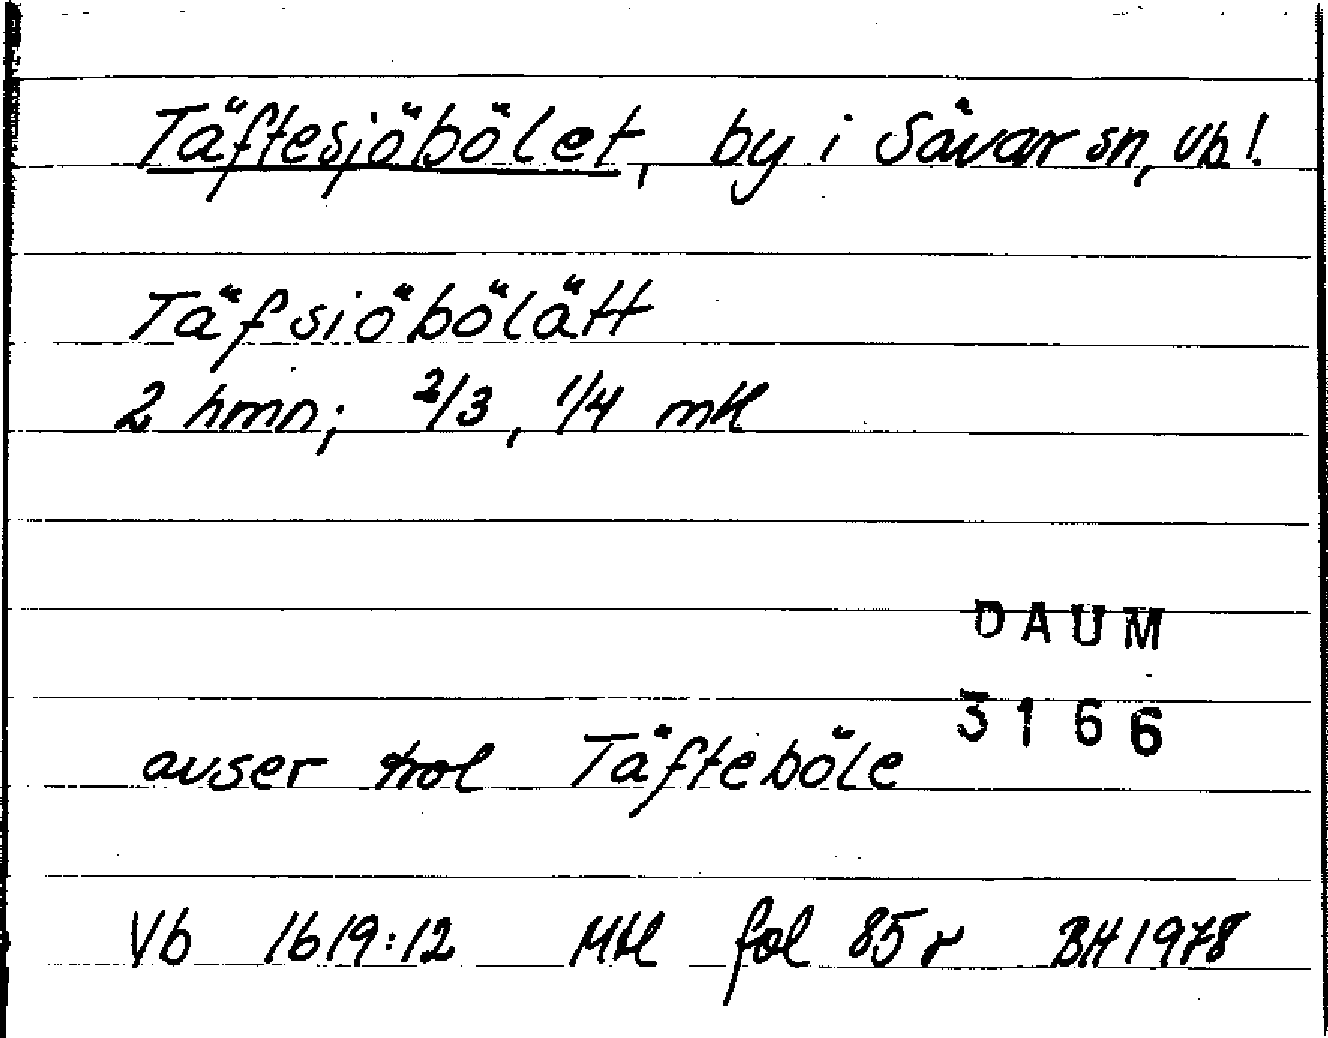 Täftesjöbölet, by i Sävar sn, Vb!.
Täfsiöbölätt
2 hmn; 2/3, 1/4 mtl
DAUM
3166
avser trol Täfteböle
Vb 1619:12 Mtl fol 85 r BH 1978